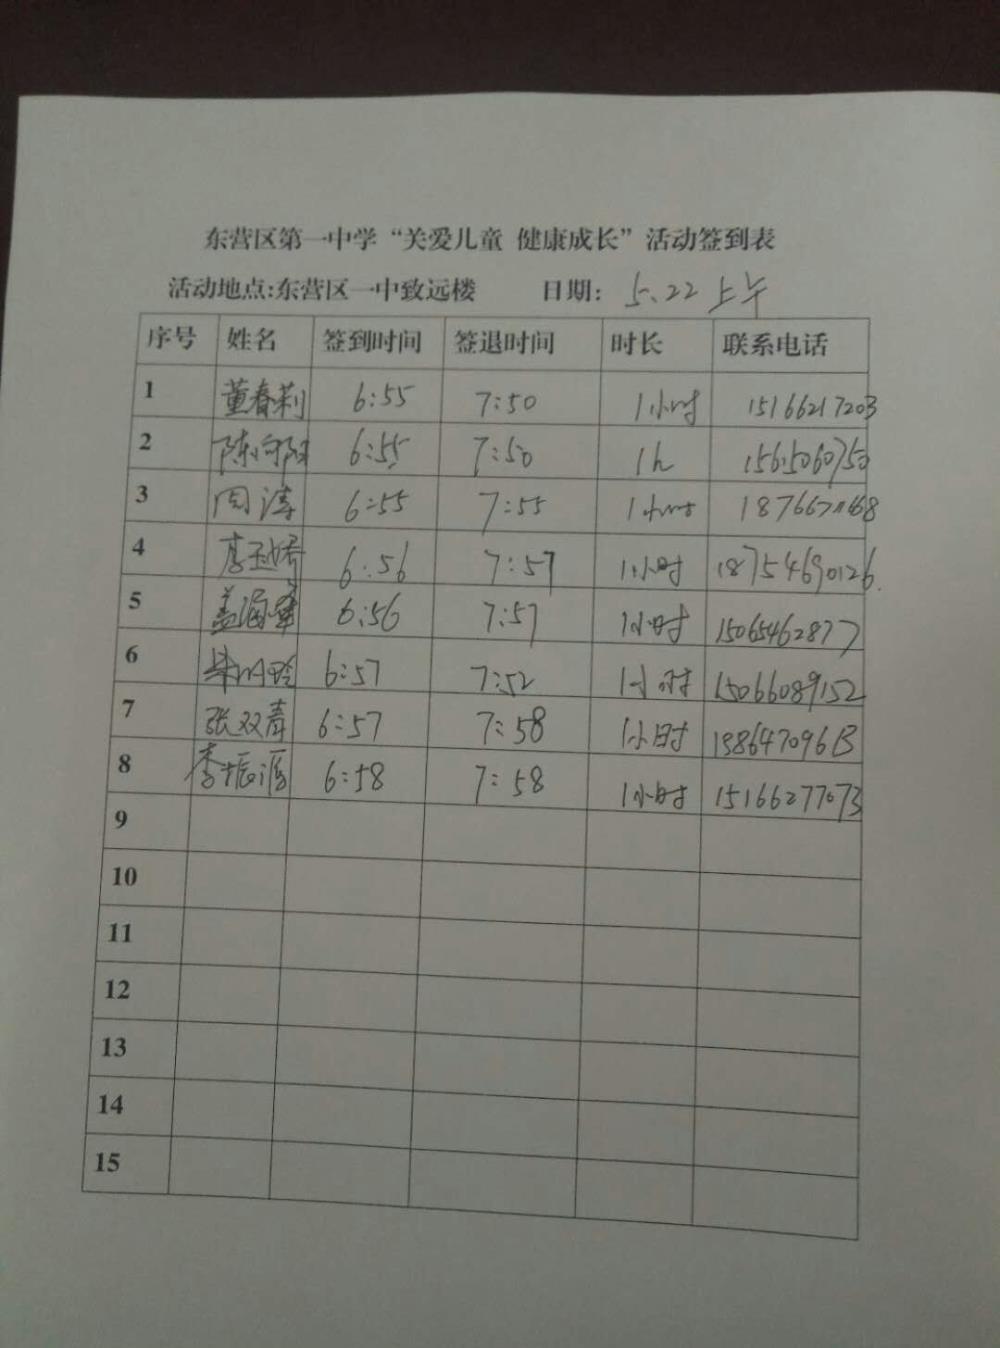 东营区第一中学“关爱儿童 健康成长”活动签到表
活动地点:东营区一中致远楼 日期: 5.22上午
序号 姓名 签到时间 签退时间 时长 联系电话
1 董春莉 6:55 7:50 1小时 15166217203
2 陈向阳 6:55 7:50 1h
3 周涛 6:55 7:55 1小时
4 6:56 7:57 1小时 18754690126.
5 6:56 7:57 1小时 15065462877
6 6:57 7:52 1小时 15066089152
7 张双青 6:57 7:58 1小时
8 李振源 6:58 7:58 1小时 15166277073
9
10
11
12
13
14
15